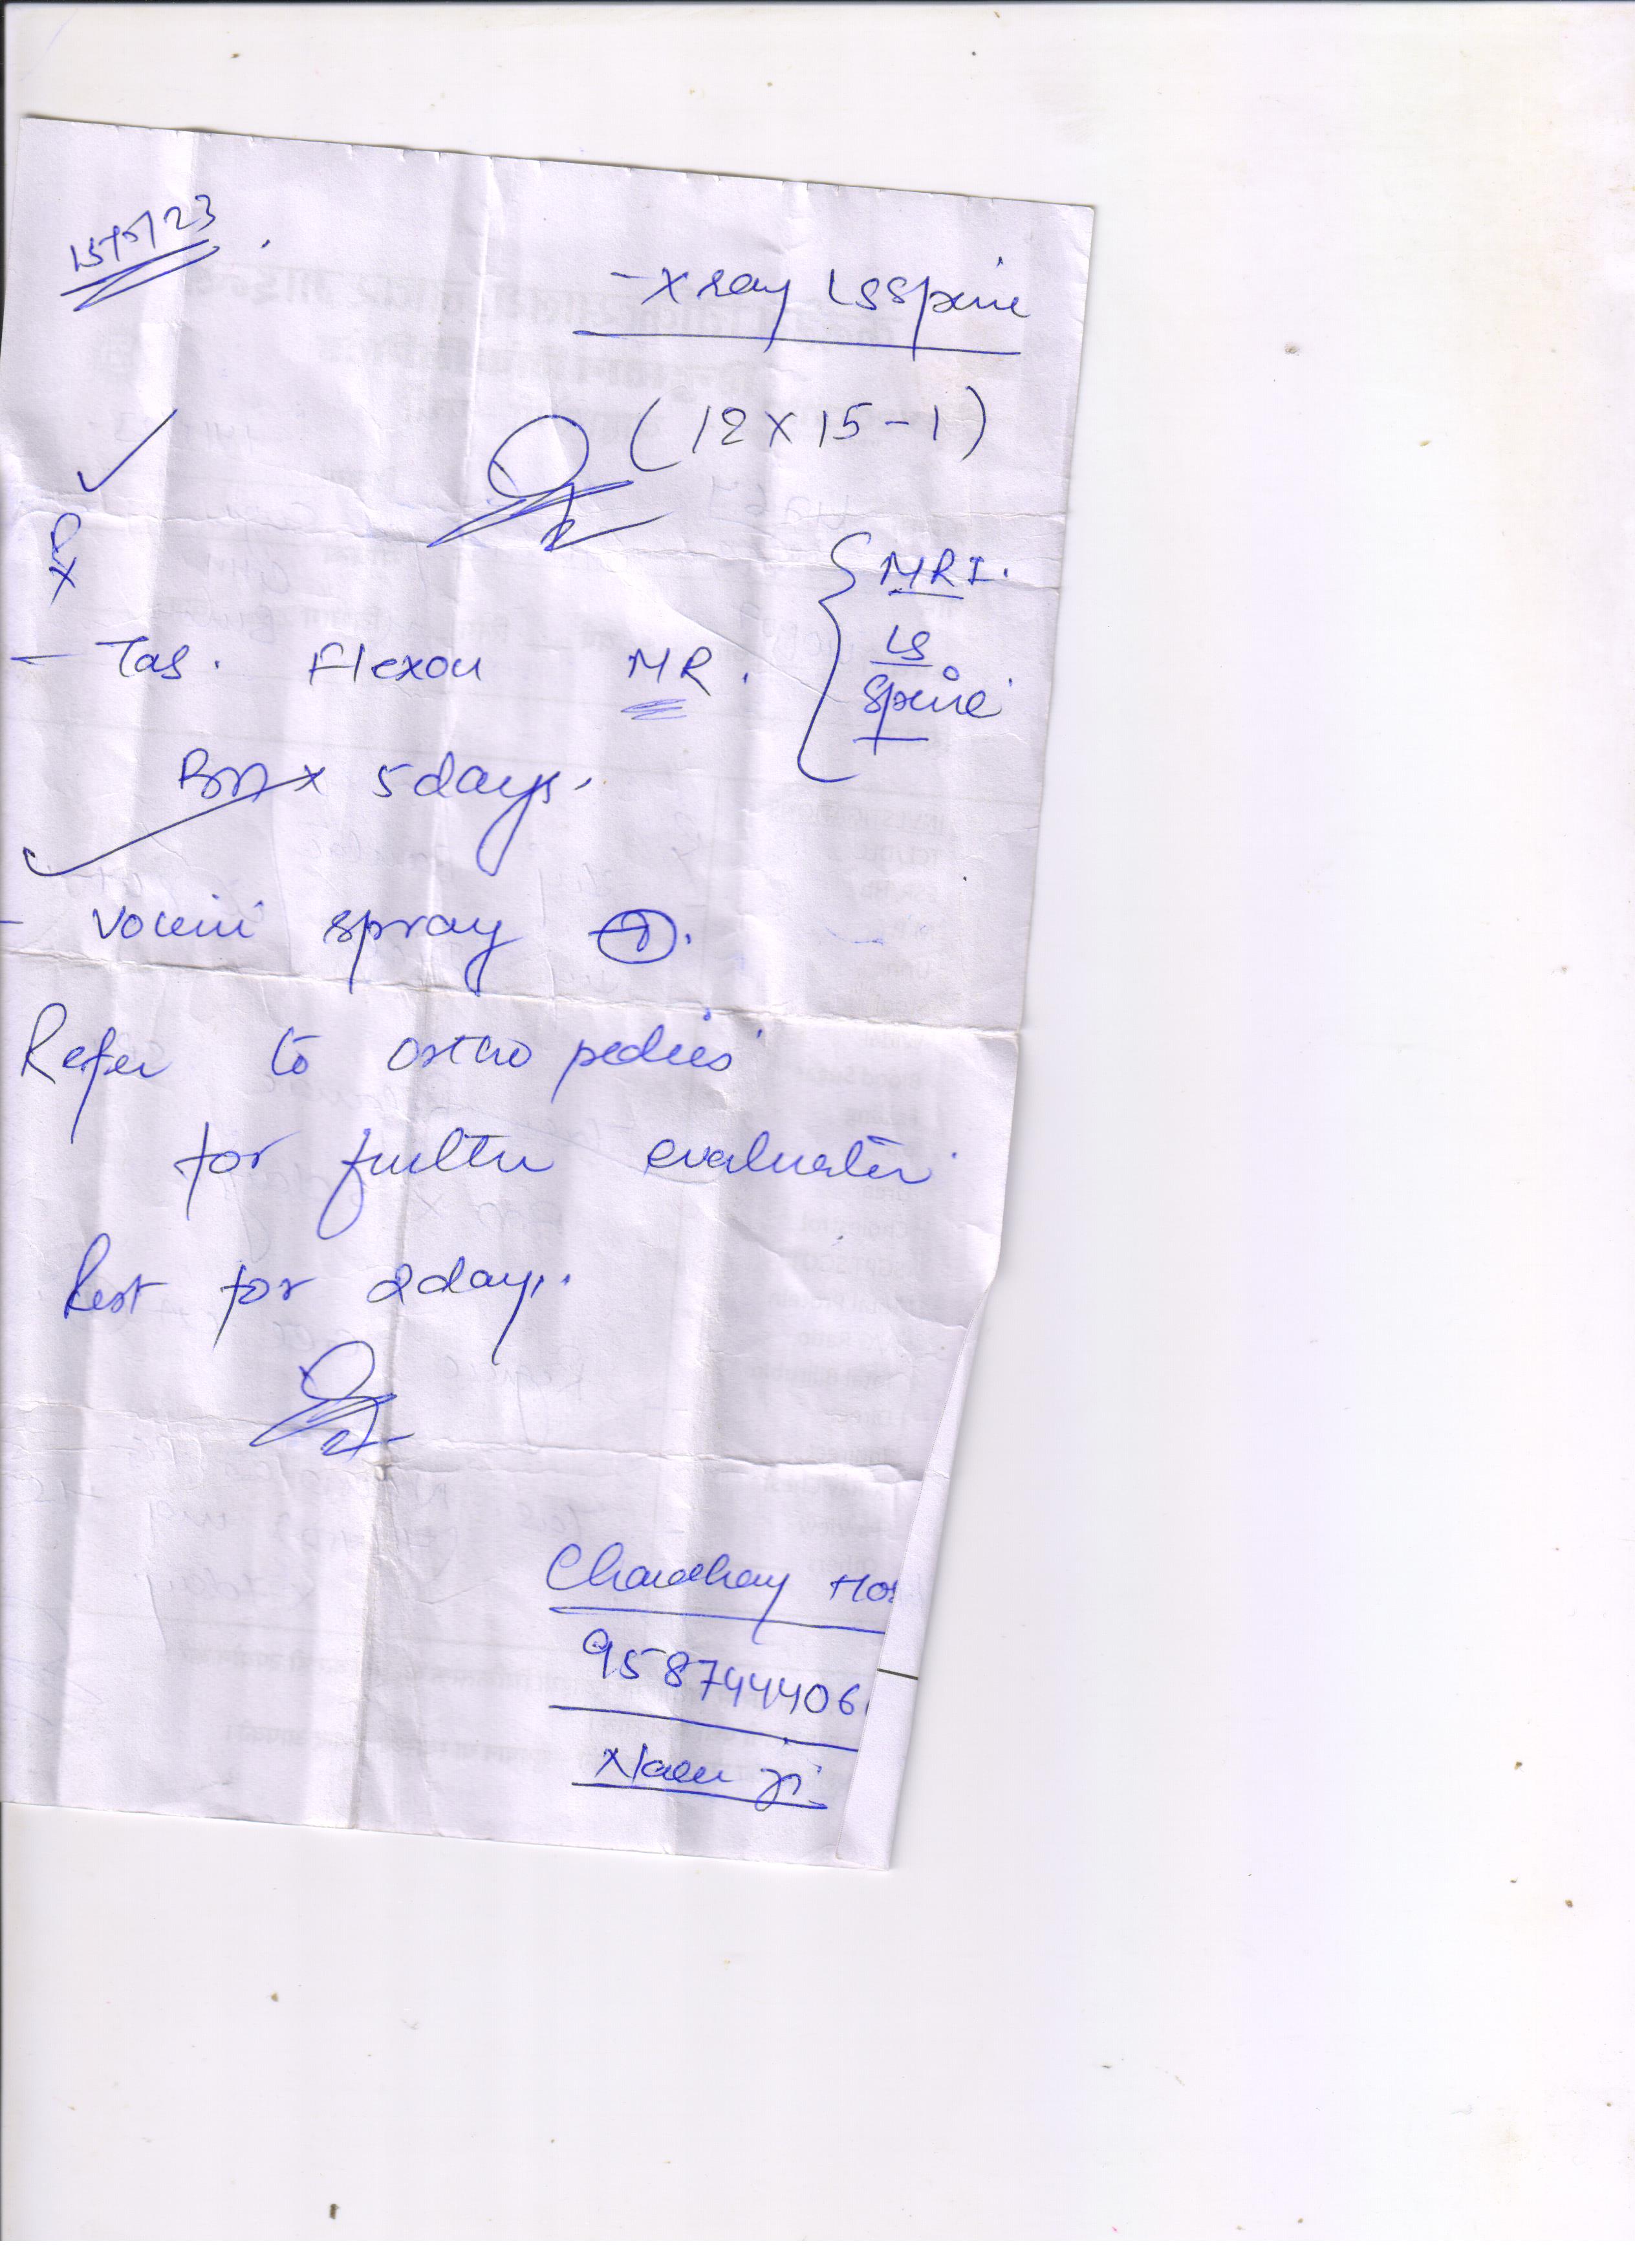 15/5/23
- X ray LS Spine
(12 X 15 - 1)
Rx
MRI.
LS
Spine
- Tab. Flexon MR.
BD x 5 days.
- Volini spray
Refer to orthopedics
for further evaluation
Rest for 2 days.
Chaudhary Hos
958744406